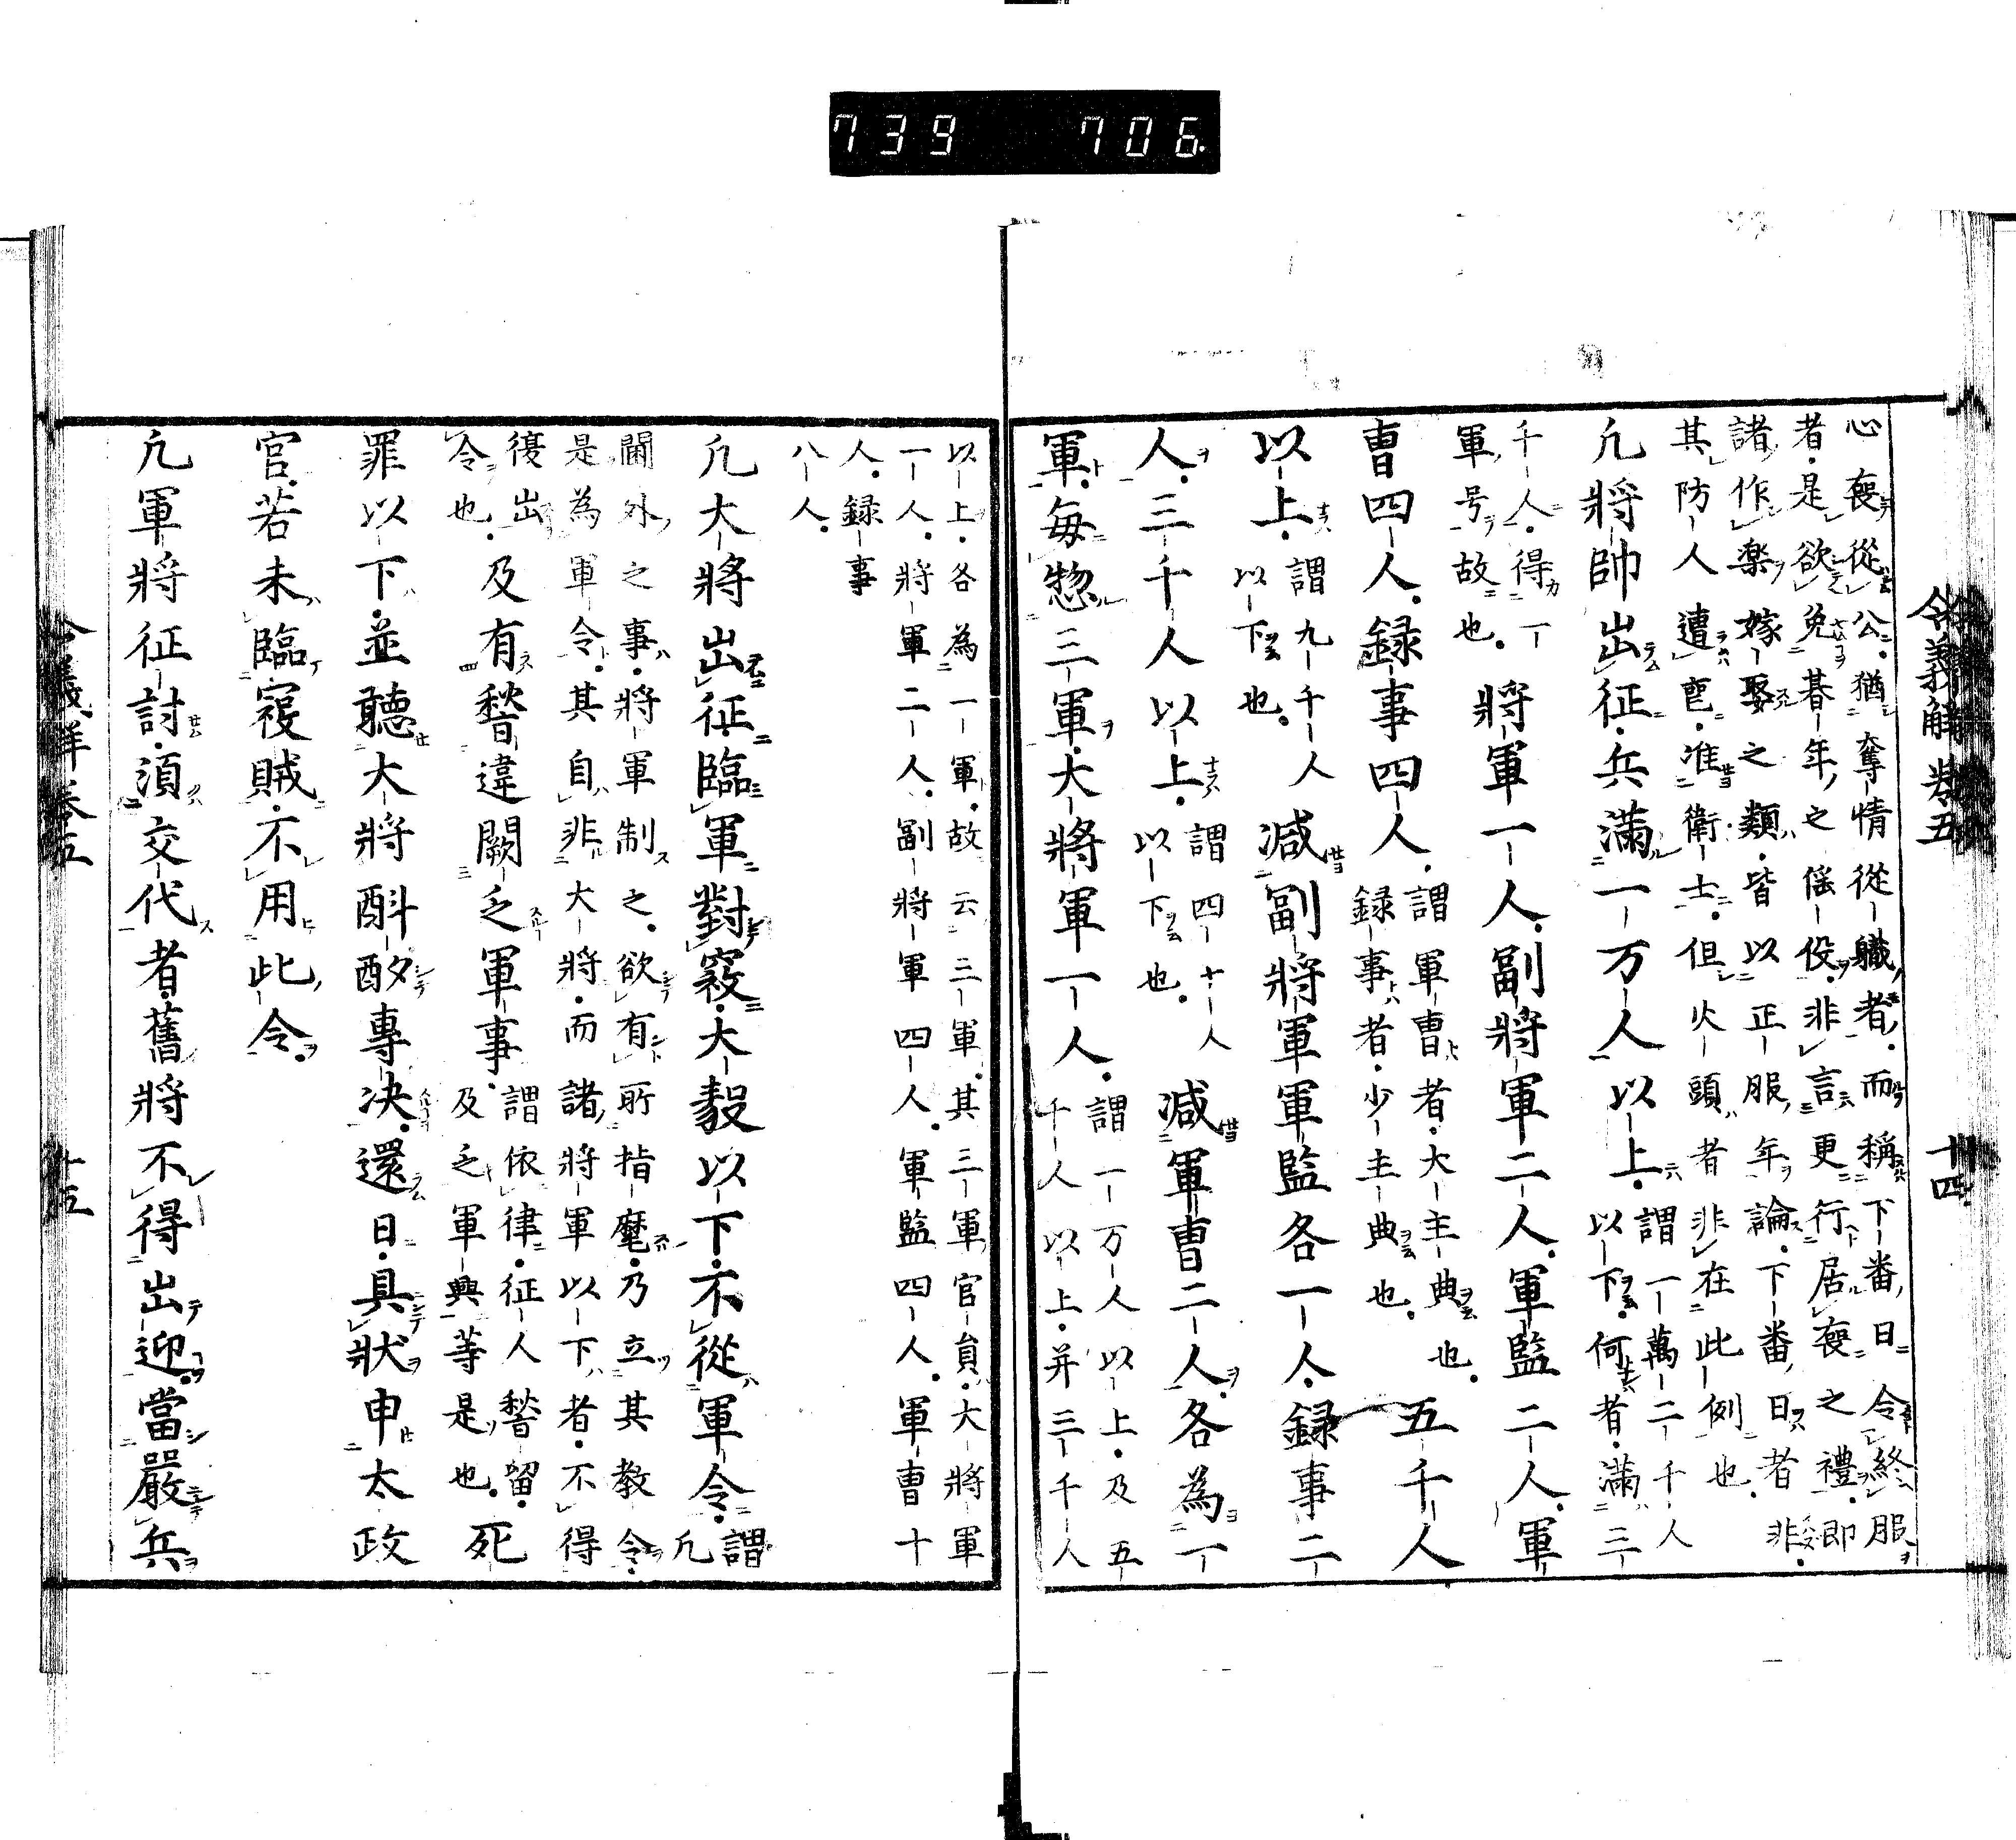 739 706
令義解卷五 十四
心喪從公猶奪情從職者而稱下番日令終服
者是欲免朞年之徭役非言更行居喪之禮即
諸作樂嫁娶之類皆以正服年論下番日者非
其防人遭喪准衛士但火頭者非在此例也
凢將帥出征兵滿一万人以上
謂一萬二千人
以下何者滿三
千人得一
軍号故也
將軍一人副將軍二人軍監二人軍
曹四人録事四人
謂軍曹者大主典也
録事者少主典也
五千人
以上
謂九千人
以下也
減副將軍軍監各一人録事二
人三千人以上
謂四千人
以下也
減軍曹二人各為一
軍毎惣三軍大將軍一人
謂一万人以上及五
千人以上并三千人
以上各為一軍故云三軍其三軍官員大將軍
一人將軍二人副將軍四人軍監四人軍曹十
人録事
八人
凢大將出征臨軍對寇大毅以下不從軍令
謂
凢
閫外之事將軍制之欲有所指麾乃立其教令
是為軍令其自非大將而諸將軍以下者不得
復出
令也
及有稽違闕乏軍事
謂依律征人稽留
及乏軍興等是也
死
罪以下並聽大將斟酌專决還日具狀申太政
官若未臨寇賊不用此令
凢軍將征討須交代者舊將不得出迎當嚴兵
令義解卷五 十五